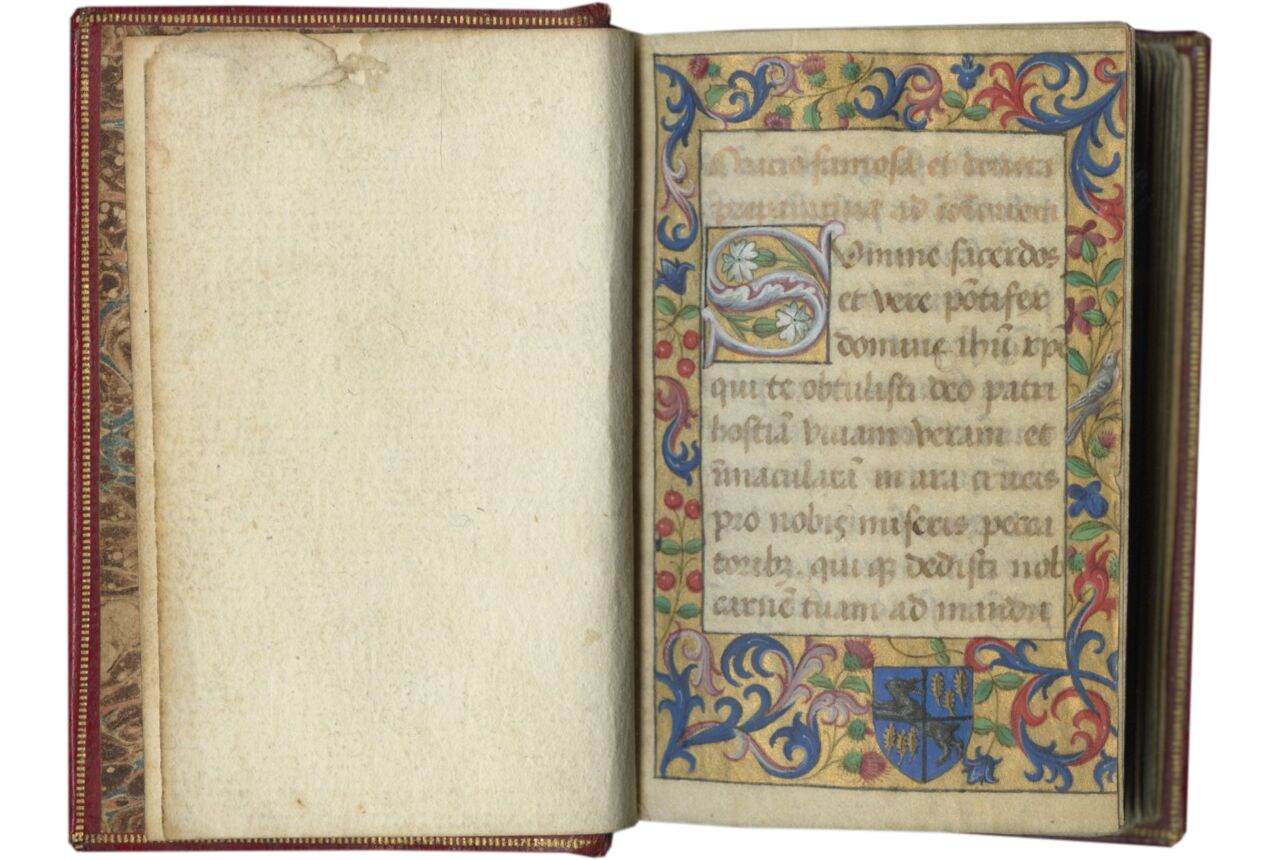 Oracio famosa et devota
preparativa ad
SUmme sacerdos
et vere põtifex
domine ihũ xpẽ
qui te obtulisti deo patri
hostiã vivam veram et
ĩmaculatã in ara crucis
pro nobis miseris pecca
toribꝫ. qui qꝫ dedisti nob
carnẽ tuam ad mandu